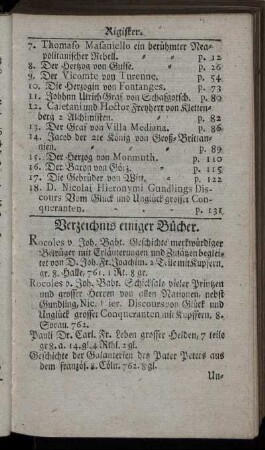 Rigister.
7. Thomaso Masaniello ein berühmter Nea-
politanischer Rebell. „ p. 12
8. Der Hertzog von Guise. „ p. 26
9. Der Vicomte von Turenne. p. 54
10. Die Herzogin von Fontanges. p. 73
11. Johann Ulrich Graf von Schafgotsch. p. 80
12. Cajetan und Hector Freyherr von Kletten-
berg 2 Alchimisten. „ p. 82
13. Der Graf von Villa Mediana. p. 86
14. Jacob der 2te König von Groß-Britan-
nien. „ „ p. 89
15. Der Herzog von Monmuth. p. 110
16. Der Baron von Görz. p. 115
17. Die Gebrüder von Witt. p. 122
18. D. Nicolai Hieronymi Gundlings Dis-
cours Vom Glück und Unglück grosser Con-
queranten. „ p. 131
Verzeichnis einiger Bücher.
Rocoles v. Joh. Babt. Geschichte merkwürdiger
Betrüger mit Erläuterungen und Zusätzen beglei-
tet von D. Joh. Fr. Joachim. 2 Teile mit Kupfern,
gr. 8. Halle, 761. 1 Rt. 8 gr.
Rocoles v. Joh. Babt. Schicksale vieler Printzen
und grosser Herren von allen Nationen, nebst
Gundling, Nic. Hier. Discours von Glück und
Unglück grosser Conqueranten mit Kupffern, 8.
Sorau. 762.
Pauli Dr. Carl. Fr. Leben grosser Helden, 7 teile
gr 8. a. 14. gl. 4 Rthl. 2gl.
Geschichte der Galanterien des Pater Peters aus
dem französ. 8. Cöln. 762. 8 gl.
Un-